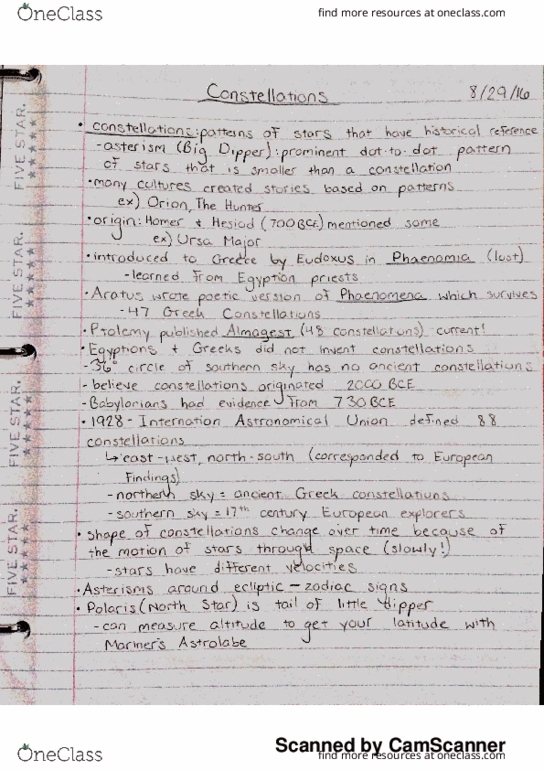 OneClass
find more resources at oneclass.com
Constellations
8/29/16
• constellations: patterns of stars that have historical reference
-asterism (Big Dipper): prominent dot-to-dot pattern
of stars that is smaller than a constellation
•many cultures created stories based on patterns
ex) Orion, The Hunter
•origin: Homer & Hesiod (700BCE) mentioned some
ex) Ursa Major
•introduced to Greece by Eudoxus in Phaenomia (lost)
-learned from Egyption priests
•Aratus wrote poetic version of Phaenomena which survives
-47 Greek Constellations
•Ptolemy published Almagest (48 constellations) current!
•Egyptions & Greeks did not invent constellations
-36° circle of southern sky has no ancient constellations
-believe constellations originated 2000 BCE
-Babylonians had evidence from 730BCE
•1928-Internation Astronomical Union defined 88
constellations
↳east-west, north-south (corresponded to European
Findings)
-northern sky = ancient Greek constellations
-southern sky = 17th century European explorers
•shape of constellations change over time because of
the motion of stars through space (slowly!)
-stars have different velocities
•Asterisms around ecliptic - zodiac signs
•Polaris (North Star) is tail of little dipper
-can measure altitude to get your latitude with
Mariner's Astrolabe
FIVE STAR.
FIVE STAR.
FIVE STAR.
FIVE STAR.
Scanned by CamScanner
OneClass
find more resources at oneclass.com